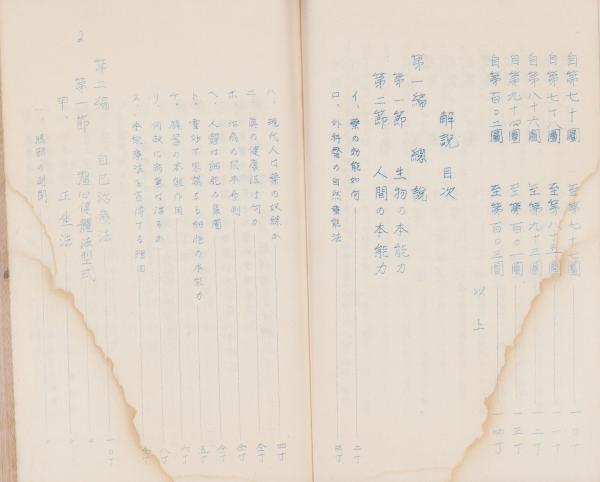 自第七十圖 至第七十七圖 一〇丁
自第七十八圖 至第八十五圖 一一丁
自第八十六圖 至第九十三圖 一二丁
自第九十四圖 至第百〇一圖 一三丁
自第百〇二圖 至第百〇三圖 一四丁
以上
解説目次
第一編 總説
第一節 生物の本能力
第二節 人間の本能力
イ、藥の効能如何 二丁
ロ、外科醫の自然療能法 三丁
ハ、現代人は藥の奴隸か 四丁
ニ、眞の健康法は何か 仝丁
ホ、治病の根本原則 仝丁
ヘ、人體は細胞の集團 仝丁
ト、靈妙不思議なる細胞の本能力 五丁
チ、臟器の本能作用 六丁
リ、何故に病氣は治るか 八丁
ヌ、本能療法を習得する理由
2
第二編 自己治療法 一〇丁
第一節 強心健體法型式
甲、正坐法
一、時間